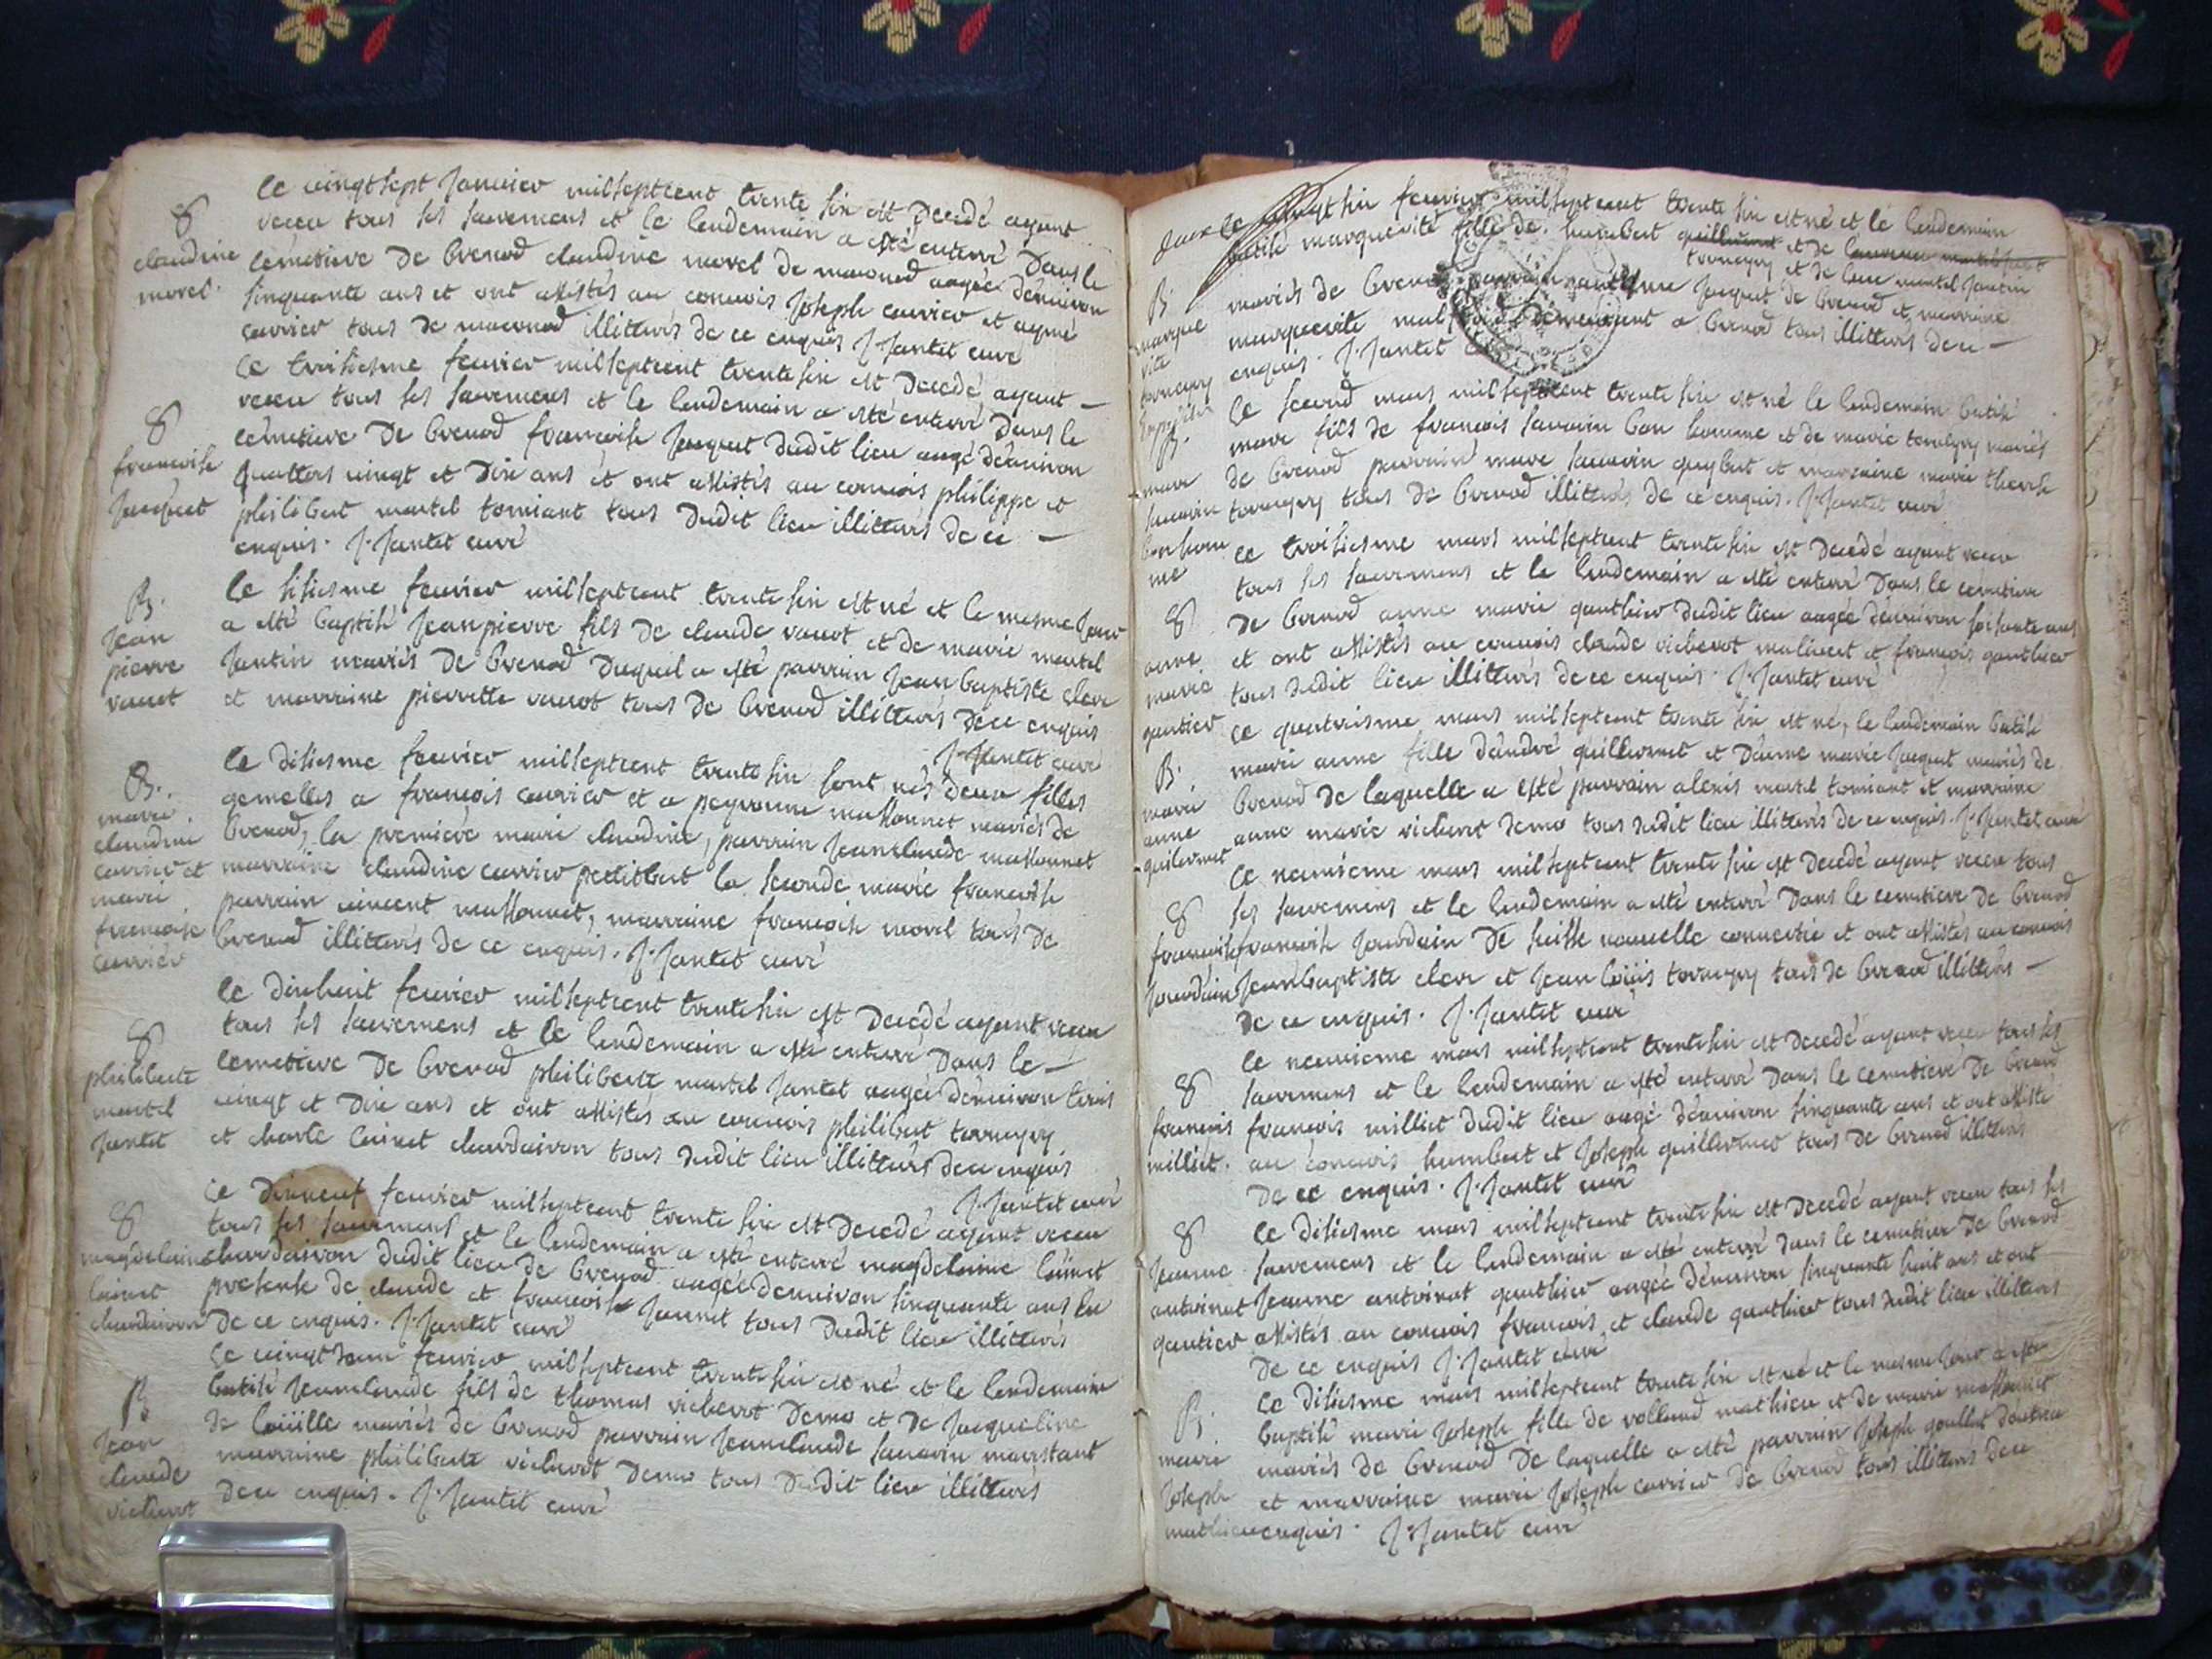 le vingt sept Janvier mil sept cent trente six est decedé ayant
receu tous ses sacremens et le lendemain a esté enterré dans le
cemetiere de brenod claudine morel de macconod aagée d'environ
sinquante ans et ont assistés au convois Joseph carrier et aymé
carrier tous de macconod illitterés de ce enquis J. Jantet curé
8
claudine
morel.
le troisiesme fevrier mil sept cent trente six est decedé ayant
receu tous ses sacremens et le lendemain a esté enterré dans le
cemetiere de brenod francoise Jacquet dudit lieu aagé d'environ
quatters vingt et dix ans et ont assistés au convois philippe et
philibert martel torniant tous dudit lieu illitterés de ce
enquis. J. Jantet curé
8
francoise
Jacquet
le sisiesme fevrier mil sept cent trente six est né et le mesme Jour
a esté baptisé Jean pierre fils de claude vauot et de marie martel
Jantin mariés de brenod duquel a esté parrain Jean baptiste clerc
et marraine pierrette vauot tous de brenod illitterés de ce enquis
J. Jantet curé
B.
Jean
pierre
vauot
le disiesme fevrier mil sept cent trente six sont nés deux filles
gemelles a francois carrier et a peyronne massonnet mariés de
brenod, la premiere marie claudine, parrain Jean claude massonnet
marraine claudine carrier petitbert la seconde marie francoise
parrain vincent massonnet, marraine francoise morel tous de
brenod illitterés de ce enquis. J. Jantet curé
B.
marie
claudine
carrier et
marie
francoise
carrier
le dixhuit fevrier mil sept cent trente six est decedé ayant receu
tous ses sacremens et le lendemain a esté enterré dans le
cemetiere de brenod philiberte martel Jantet aagée d'environ trois
vingt et dix ans et ont assistés au convois philibert tournery
et charle loinet chardairon tous dudit lieu illitterés de ce enquis
J. Jantet curé
8
philiberte
martel
Jantet
le dixneuf fevrier mil sept cent trente six est decedé ayant receu
tous ses sacremens et le lendemain a esté enterré magdelaine loinet
chardairon dudit lieu de brenod aagée d'environ sinquante ans en
presense de claude et francoise Jannet tous dudit lieu illitterés
de ce enquis. J. Jantet curé
8
magdelaine
loinet
chardairon
le vingt deux fevrier mil sept cent trente six est né et le lendemain
batisé Jean claude fils de thomas vicherot demo et de Jacqueline
de loüille mariés de brenod parrain Jean claude savarin
marraine philiberte vicherot demo tous dudit lieu illitterés
de ce enquis. J. Jantet curé
B
Jean
claude
vicherot
le vingt six fevrier mil sept cent trente six est né et le lendemain
batisé marguerite fille de humbert et de
tournery et de martel Jantin
mariés de brenod parrain Jacquet de brenod et marraine
marguerite demeurant a brenod tous illitterés de ce
enquis. J. Jantet
B.
margue
rite
tournery
le second mars mil sept cent trente six est né le lendemain batisé
marc fils de francois savarin bon homme et de marie tournery mariés
de brenod parrain marc savarin guybert et marraine marie therese
tournery tous de brenod illitterés de ce enquis. J. Jantet curé
B.
marc
savarin
bonhom
me
le troisiesme mars mil sept cent trente six est decedé ayant receu
tous ses sacremens et le lendemain a esté enterré dans le cemetiere
de brenod anne marie gauthier dudit lieu aagée d'environ soisante ans
et ont assistés au convois claude vicherot malivert et francois gauthier
tous dudit lieu illitterés de ce enquis. J. Jantet curé
8
anne
marie
gautier
le quatriesme mars mil sept cent trente six est né, le lendemain batisé
marie anne fille d'andré guillermet et d'anne marie Jacquet mariés de
brenod de laquelle a esté parrain alexis martel torniant et marraine
anne marie vicherot demo tous dudit lieu illitterés de ce enquis. J. Jantet curé
B.
marie
anne
guilermet
le neuvieme mars mil sept cent trente six est decedé ayant receu tous
ses sacremens et le lendemain a esté enterré dans le cemetiere de brenod
francoise Jourdain de suisse nouvelle convertie et ont assistés au convois
Jean baptiste clerc et Jean loüis tournery tous de brenod illitterés
de ce enquis. J. Jantet curé
8
francoise
Jourdain
le neuvieme mars mil sept cent trente six est decedé ayant receu tous ses
sacremens et le lendemain a esté enterré dans le cemetiere de brenod
francois milliet dudit lieu aagé d'environ sinquante ans et ont assisté
au convois humbert et Joseph guillermet tous de brenod illitterés
de ce enquis. J. Jantet curé
8
francois
milliet.
le disiesme mars mil sept cent trente six est decedé ayant receu tous ses
sacremens et le lendemain a esté enterré dans le cemetiere de brenod
Jeanne antoinat gauthier aagée d'environ sinquante huit ans et ont
assistés au convois francois et claude gauthier tous dudit lieu illitterés
de ce enquis J. Jantet curé
8
Jeanne
antoinat
gautier
le disiesme mars mil sept cent trente six est né et le mesme Jour a esté
baptisé marie Joseph fille de rolland mathieu et de marie massonnet
mariés de brenod de laquelle a esté parrain Joseph goullet
et marraine marie Joseph carrier de brenod tous illitterés de ce
enquis. J. Jantet curé
B.
marie
Joseph
mathieu